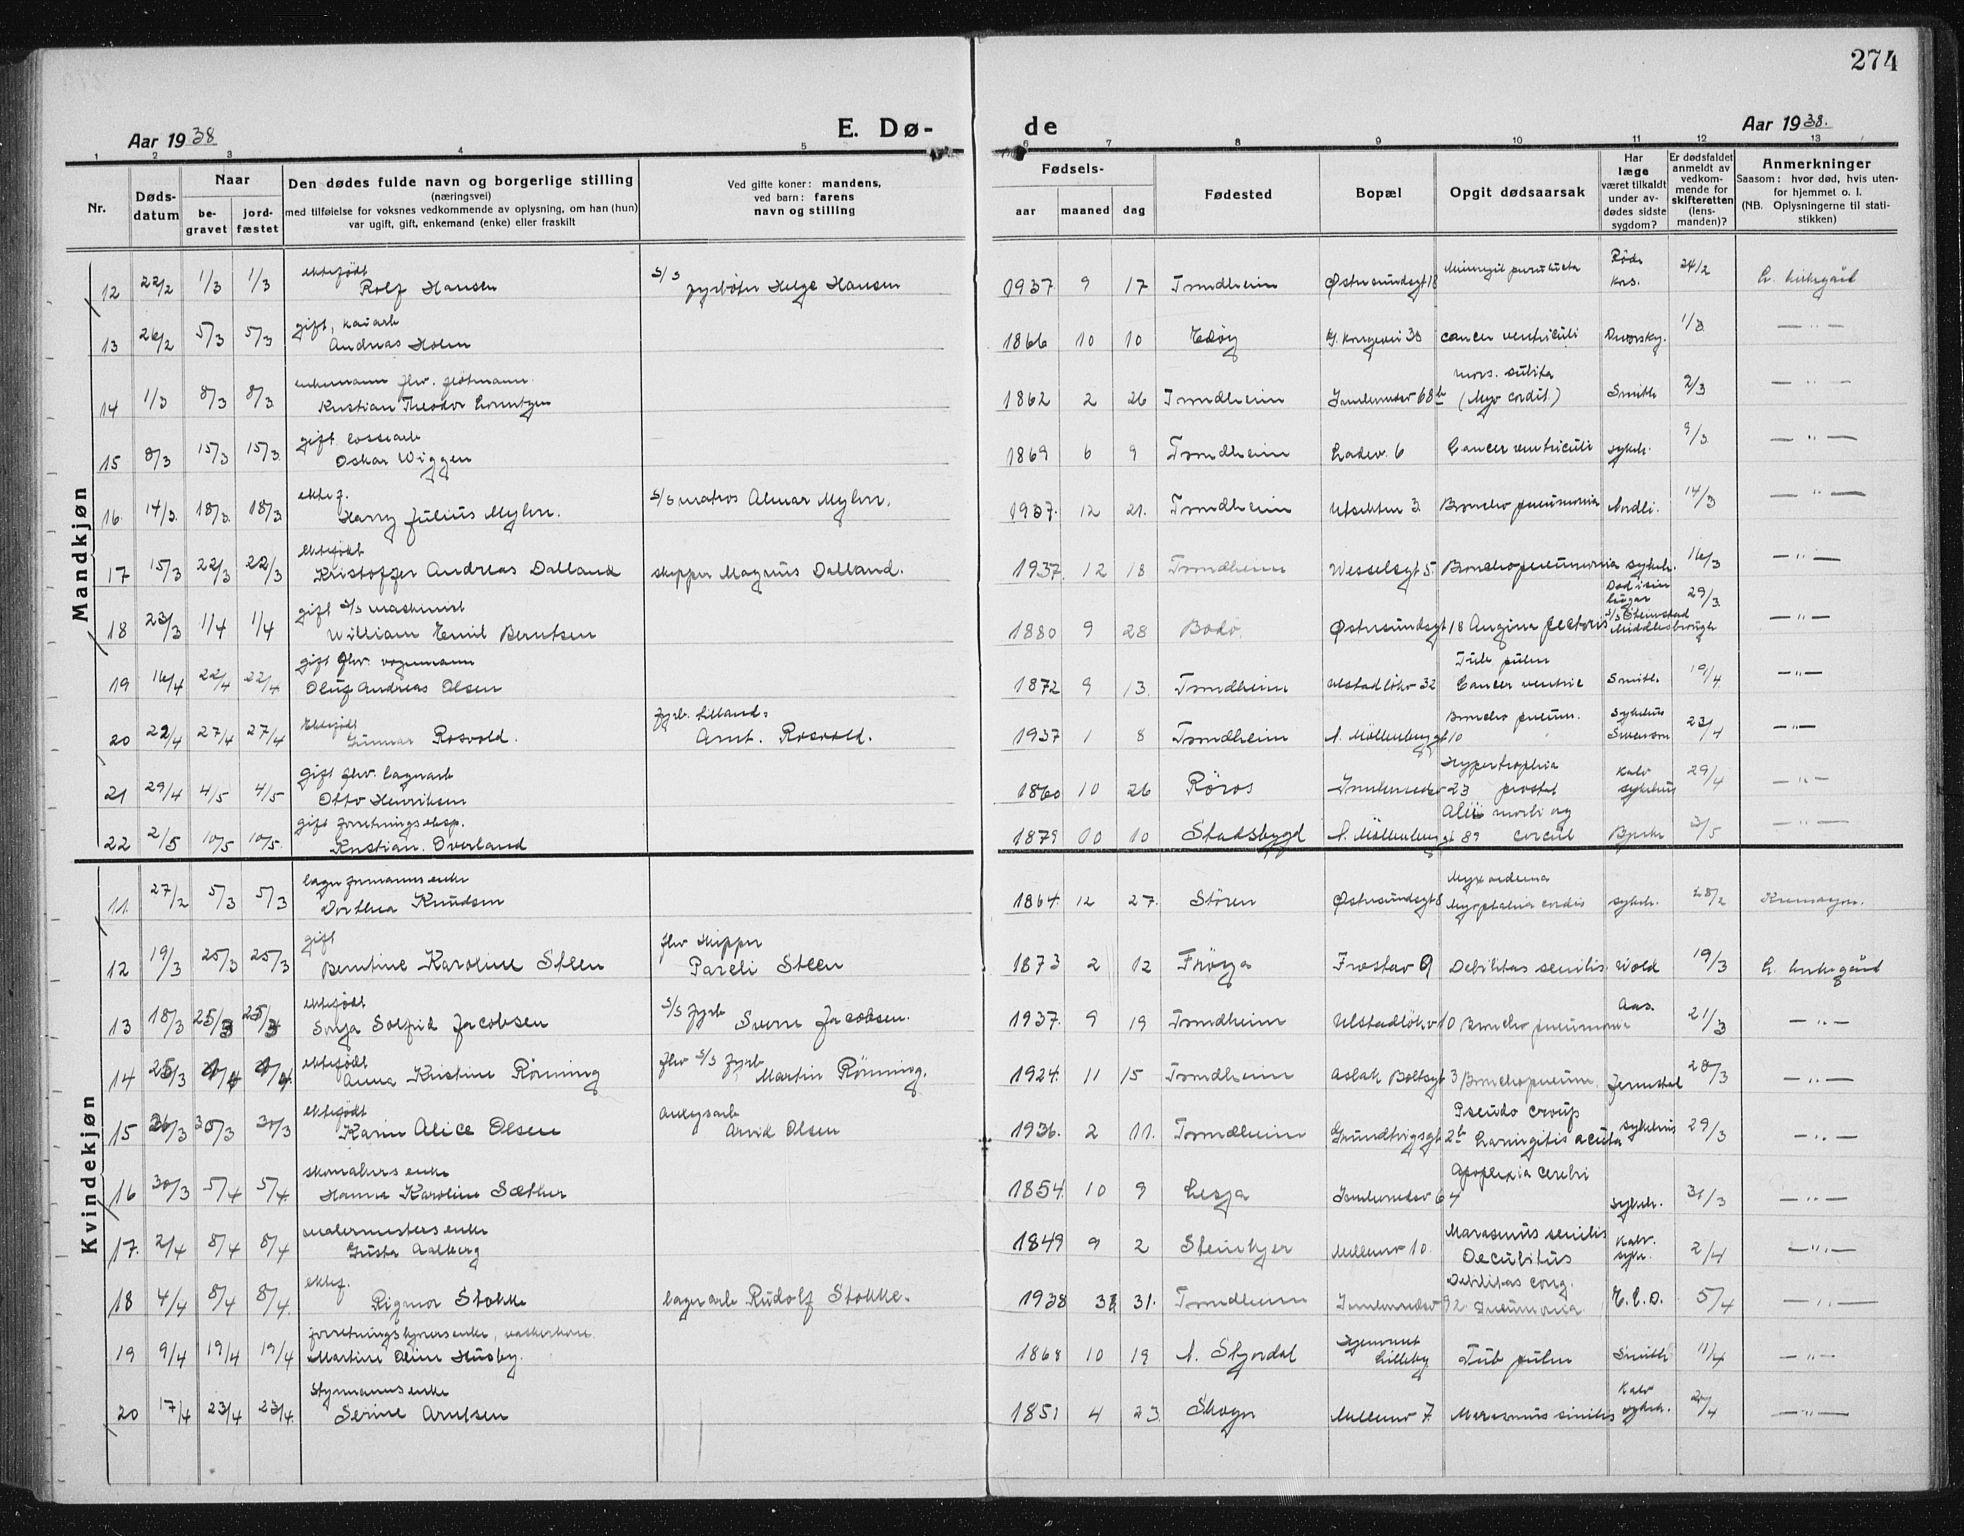 274
Aar 1938
E. Dø-
de
Aar 1938.
1 2 3 4 5 6 7 8 9 10 11 12 13
Nr.
Døds-
datum
Naar
be-
gravet
jord-
fæstet
Den dødes fulde navn og borgerlige stilling
(næringsvei)
med tilføielse for voksnes vedkommende av oplysning, om han (hun)
var ugift, gift, enkemand (enke) eller fraskilt
Ved gifte koner: mandens,
ved barn: farens
navn og stilling
Fødsels-
aar maaned dag
Fødested
Bopæl
Opgit dødsaarsak
Har
læge
været tilkaldt
under av-
dødes sidste
sygdom?
Er dødsfaldet
anmeldt av
vedkom-
mende for
skifteretten
(lens-
manden)?
Anmerkninger
Saasom: hvor død, hvis uten-
for hjemmet o. l.
(NB. Oplysningerne til stati-
stikken)
Mandkjøn
ektefödt
12 22/2 1/3 1/3 Rolf Hansen s/s fyrbøter Helge Hansen 1937 9 17 Trondheim Østersundsgt 18 Røde Kors. 24/2 L. kirkegård
gift,
13 26/2 5/3 5/3 Andreas Holm 1866 10 10 Edöy cancer ventriculi 1/3 — " —
enkemann fhv.
mors. subita
14 1/3 8/3 8/3 Kristian Theodor Lorentzen 1862 2 26 Trondheim Innherredsv 68b Smith 2/3 — " —
gift lossearb
15 8/3 15/3 15/3 Oskar Wiggen 1869 6 9 Trondheim Ladev. 6 Cancer ventriculi sykeh. 9/3 — " —
ektef.
16. 14/3. 18/3. 18/3 Harry Julius Myhre. s/s matros Almar Myhre. 1937. 12 21. Trondheim Utsikten 3 Broncho pneumonia Nordli. 14/3 — " —
ektefödt
17 15/3 22/3 22/3 Kristoffer Andreas Dalland skipper Magnus Dalland. 1937. 12 18 Trondheim Wesselsgt 5 Bronchopneumonia sykeh. 16/3 — " —
gift s/s maskinist
Död i sin
lugar
18 23/3 1/4 1/4 William Emil Berntsen 1880 9 28 Bodö. Østersundsgt 18 Angina pectoris s/s Steinstad Middlesbrough 29/3. — " —
gift fhv. vognmann
Tub pulm
19 16/4 22/4 22/4 Oluf Andreas Olsen 1872 9 13. Trondheim Ulstadlökv 32 Cancer ventric Smith. 19/4. — " —
Ektefödt
fyrb.
Broncho pneum.
Sykehus
20 22/4 27/4 27/4 Gunnar Rosvold. Arnt. Rosvold. 1937 1 8 Trondheim N. Möllenberggt 10 23/4 — " —
gift fhv. lagerarb
Hypertrophia
21 29/4 4/5 4/5 Otto Henriksen 1860 10 26 Röros Innherredsv 23 prostat sykehus 29/4 — " —
gift forretningseksp.
22 2/5 10/5 10/5. Kristian. Overland 1879 10 10 Stadsbygd N. Möllenberggt 89 3/5 — " —
Kvindekjøn
11. 27/2 5/3 5/3 Dorthea Knudsen 1864. 12 27. Stören Østersundsgt 8 sykeh. 28/2
Myxoedema
gift
fhv skipper
12 19/3 25/3 25/3 Berntine Karoline Steen Pareli Steen 1873 2 12 Fröya Frostav 9 Debilitas senilis. Wold 19/3 L. kirkegård
ektefödt
s/s fyrb
13 18/3 25/3 25/3 Sonja Solfrid Jacobsen Sverre Jacobsen. 1937. 9 19 Trondheim Ulstadlökv 10 Broncho pneumonia Aas. 21/3 — " —
ektefödt
fhv s/s fyrb
14 25/3 1/4 1/4. Anna Kristine Rönning Martin Rönning. 1924. 11 15 Trondheim Aslak Boltsgt 3 Bronchopneum. Jermstad 28/3 — " —
ektefödt
anleggsarb
Pseudo croup
15 26/3 30/3 30/3 Karin Alice Olsen Arvid Olsen 1936. 2 11. Trondheim Grundtvigsgt 2b Laringitis acuta sykehus 29/3 — " —
skomakers enke
Apoplexia cerebri
16 30/3 5/4 5/4 Hanna Karoline Sæther 1854. 10 9 Lesja Innherredsv 64 sykeh. 31/3 — " —
malermesters enke
Marasmus senilis
17. 2/4 8/4 8/4 Gusta Aalberg 1849 9 2 Steinkjer Mellomv 10. Decubitus 2/4 — " —
ektef.
Debilitas cong.
18 4/4 8/4 8/4. Rigmor Stokke lagerarb Rudolf Stokke. 1938 3 31. Trondheim Innherredsv 92 Pneumonia E.C.D. 5/4 — " —
Hjemmet
19 9/4 19/4 19/4 Martine Oline Husby. 1868 10 19 N. Stjördal Lilleby Tub pulm Smith 11/4 — " —
Styrmanns enke
20 17/4 23/4 23/4. Serine Arntsen 1851 4 23 Skogn Mellomv 7. Marasmus senilis — " —